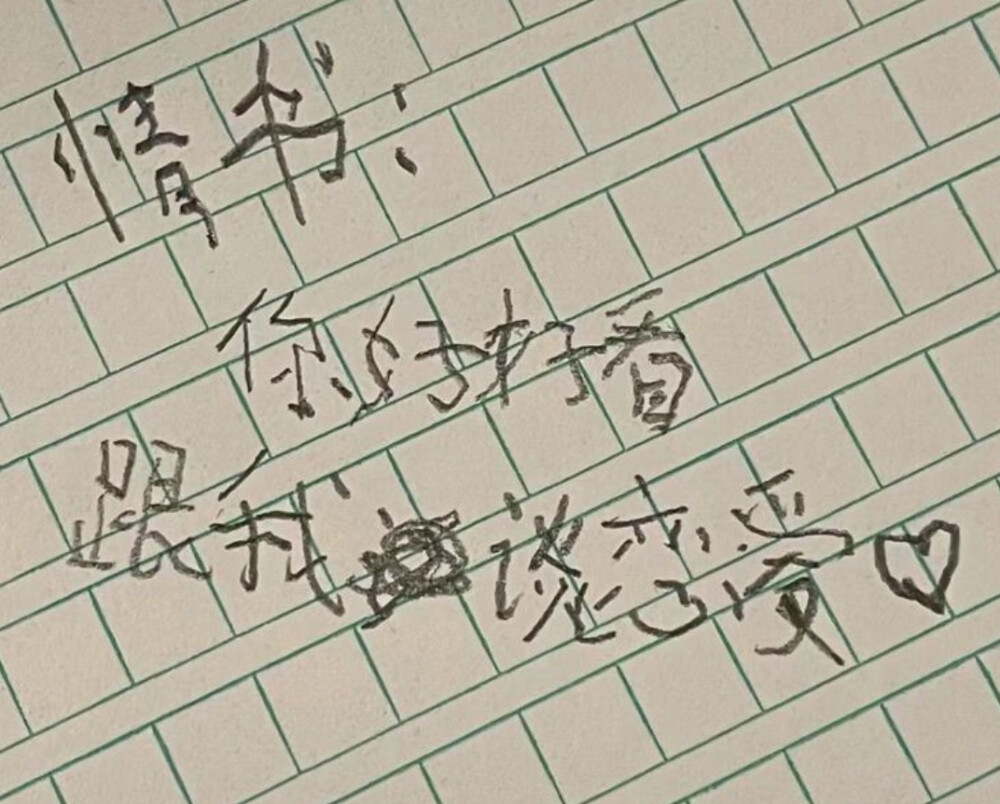 情书:
你好好看
跟我谈恋爱♡